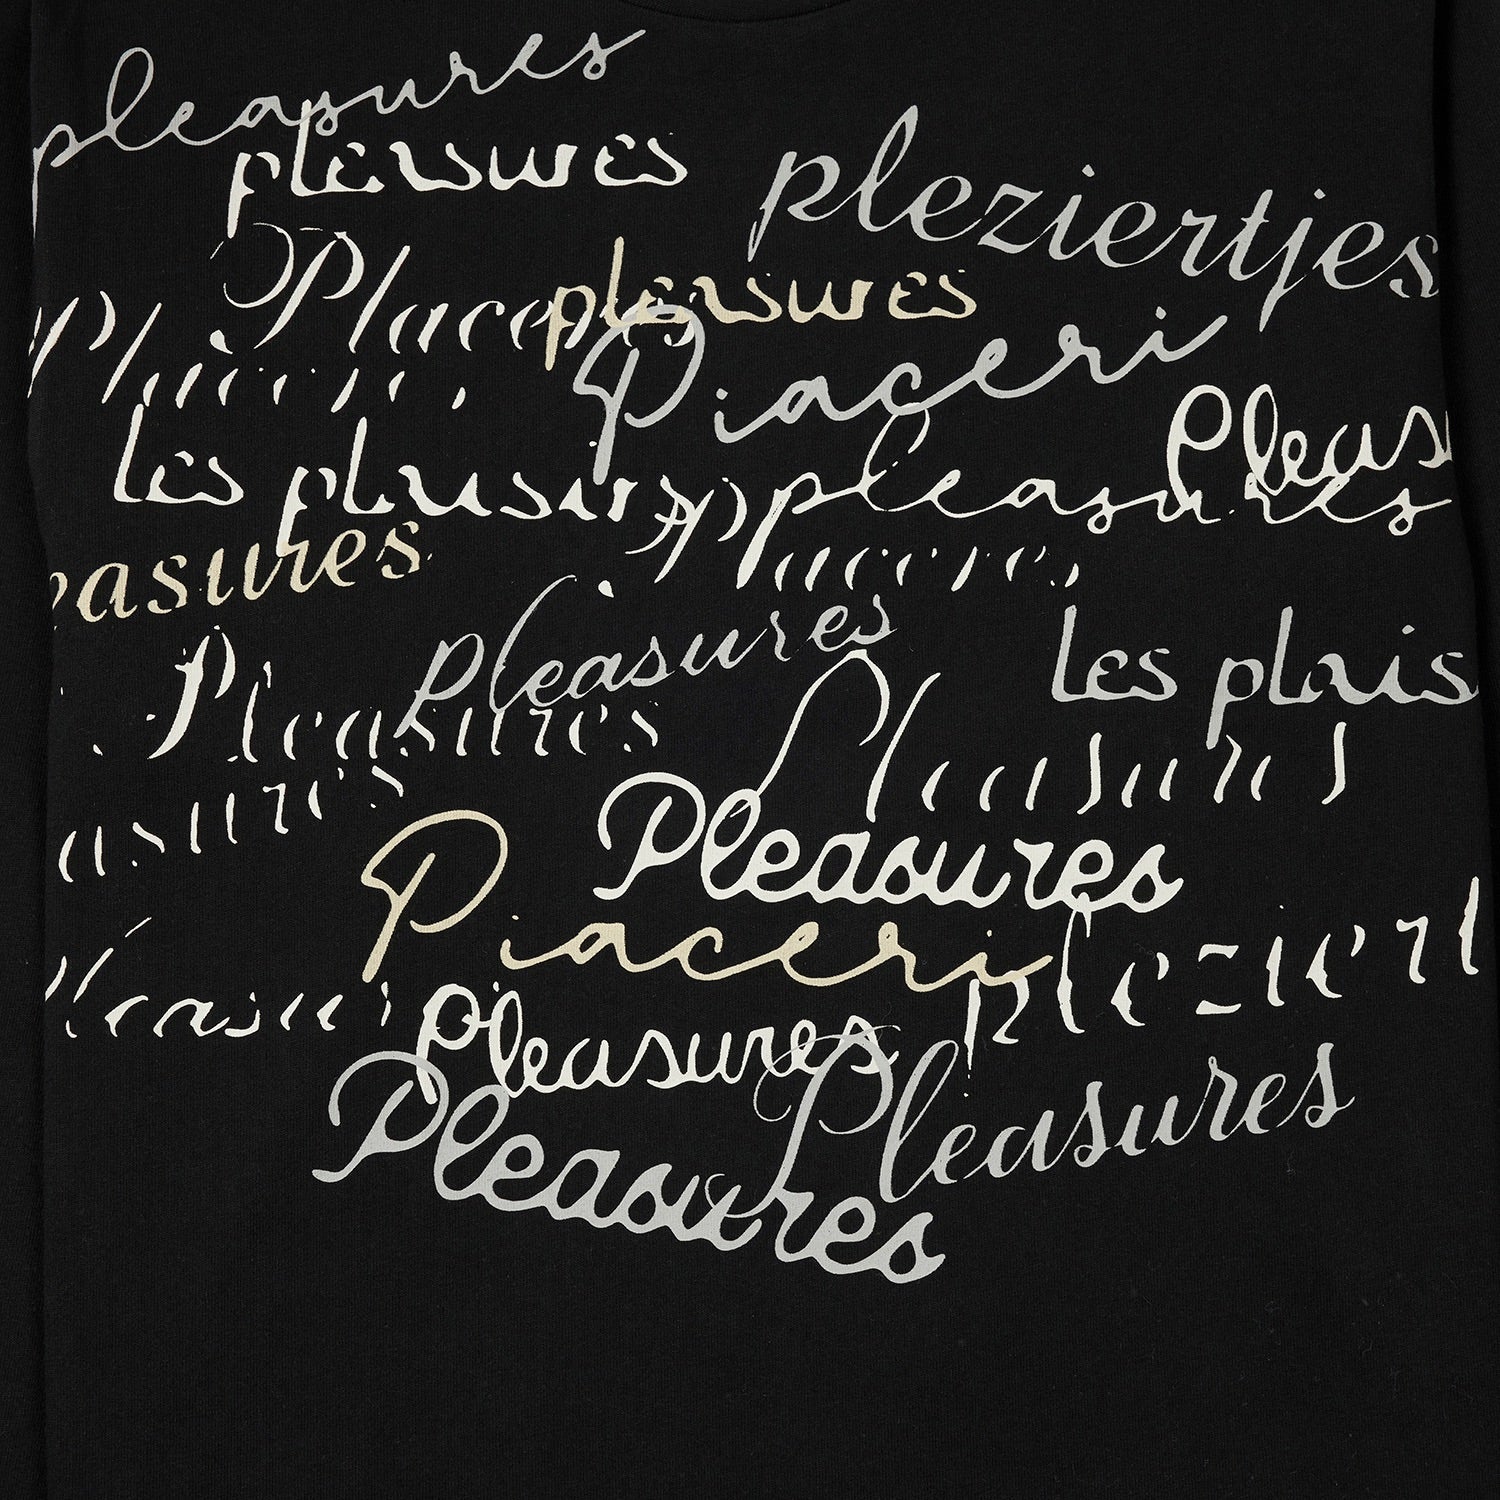 pleasures
pleasures
pleziertjes
Placeres
pleasures
Piaceri
Pleas
les plaisirs
pleasures
easures
Placeres
pleasures
les plais
Pleasures
Pleasures
asures
Pleasures
Piaceri
pleziert
Pleasur
pleasures
Pleasures
Pleasures